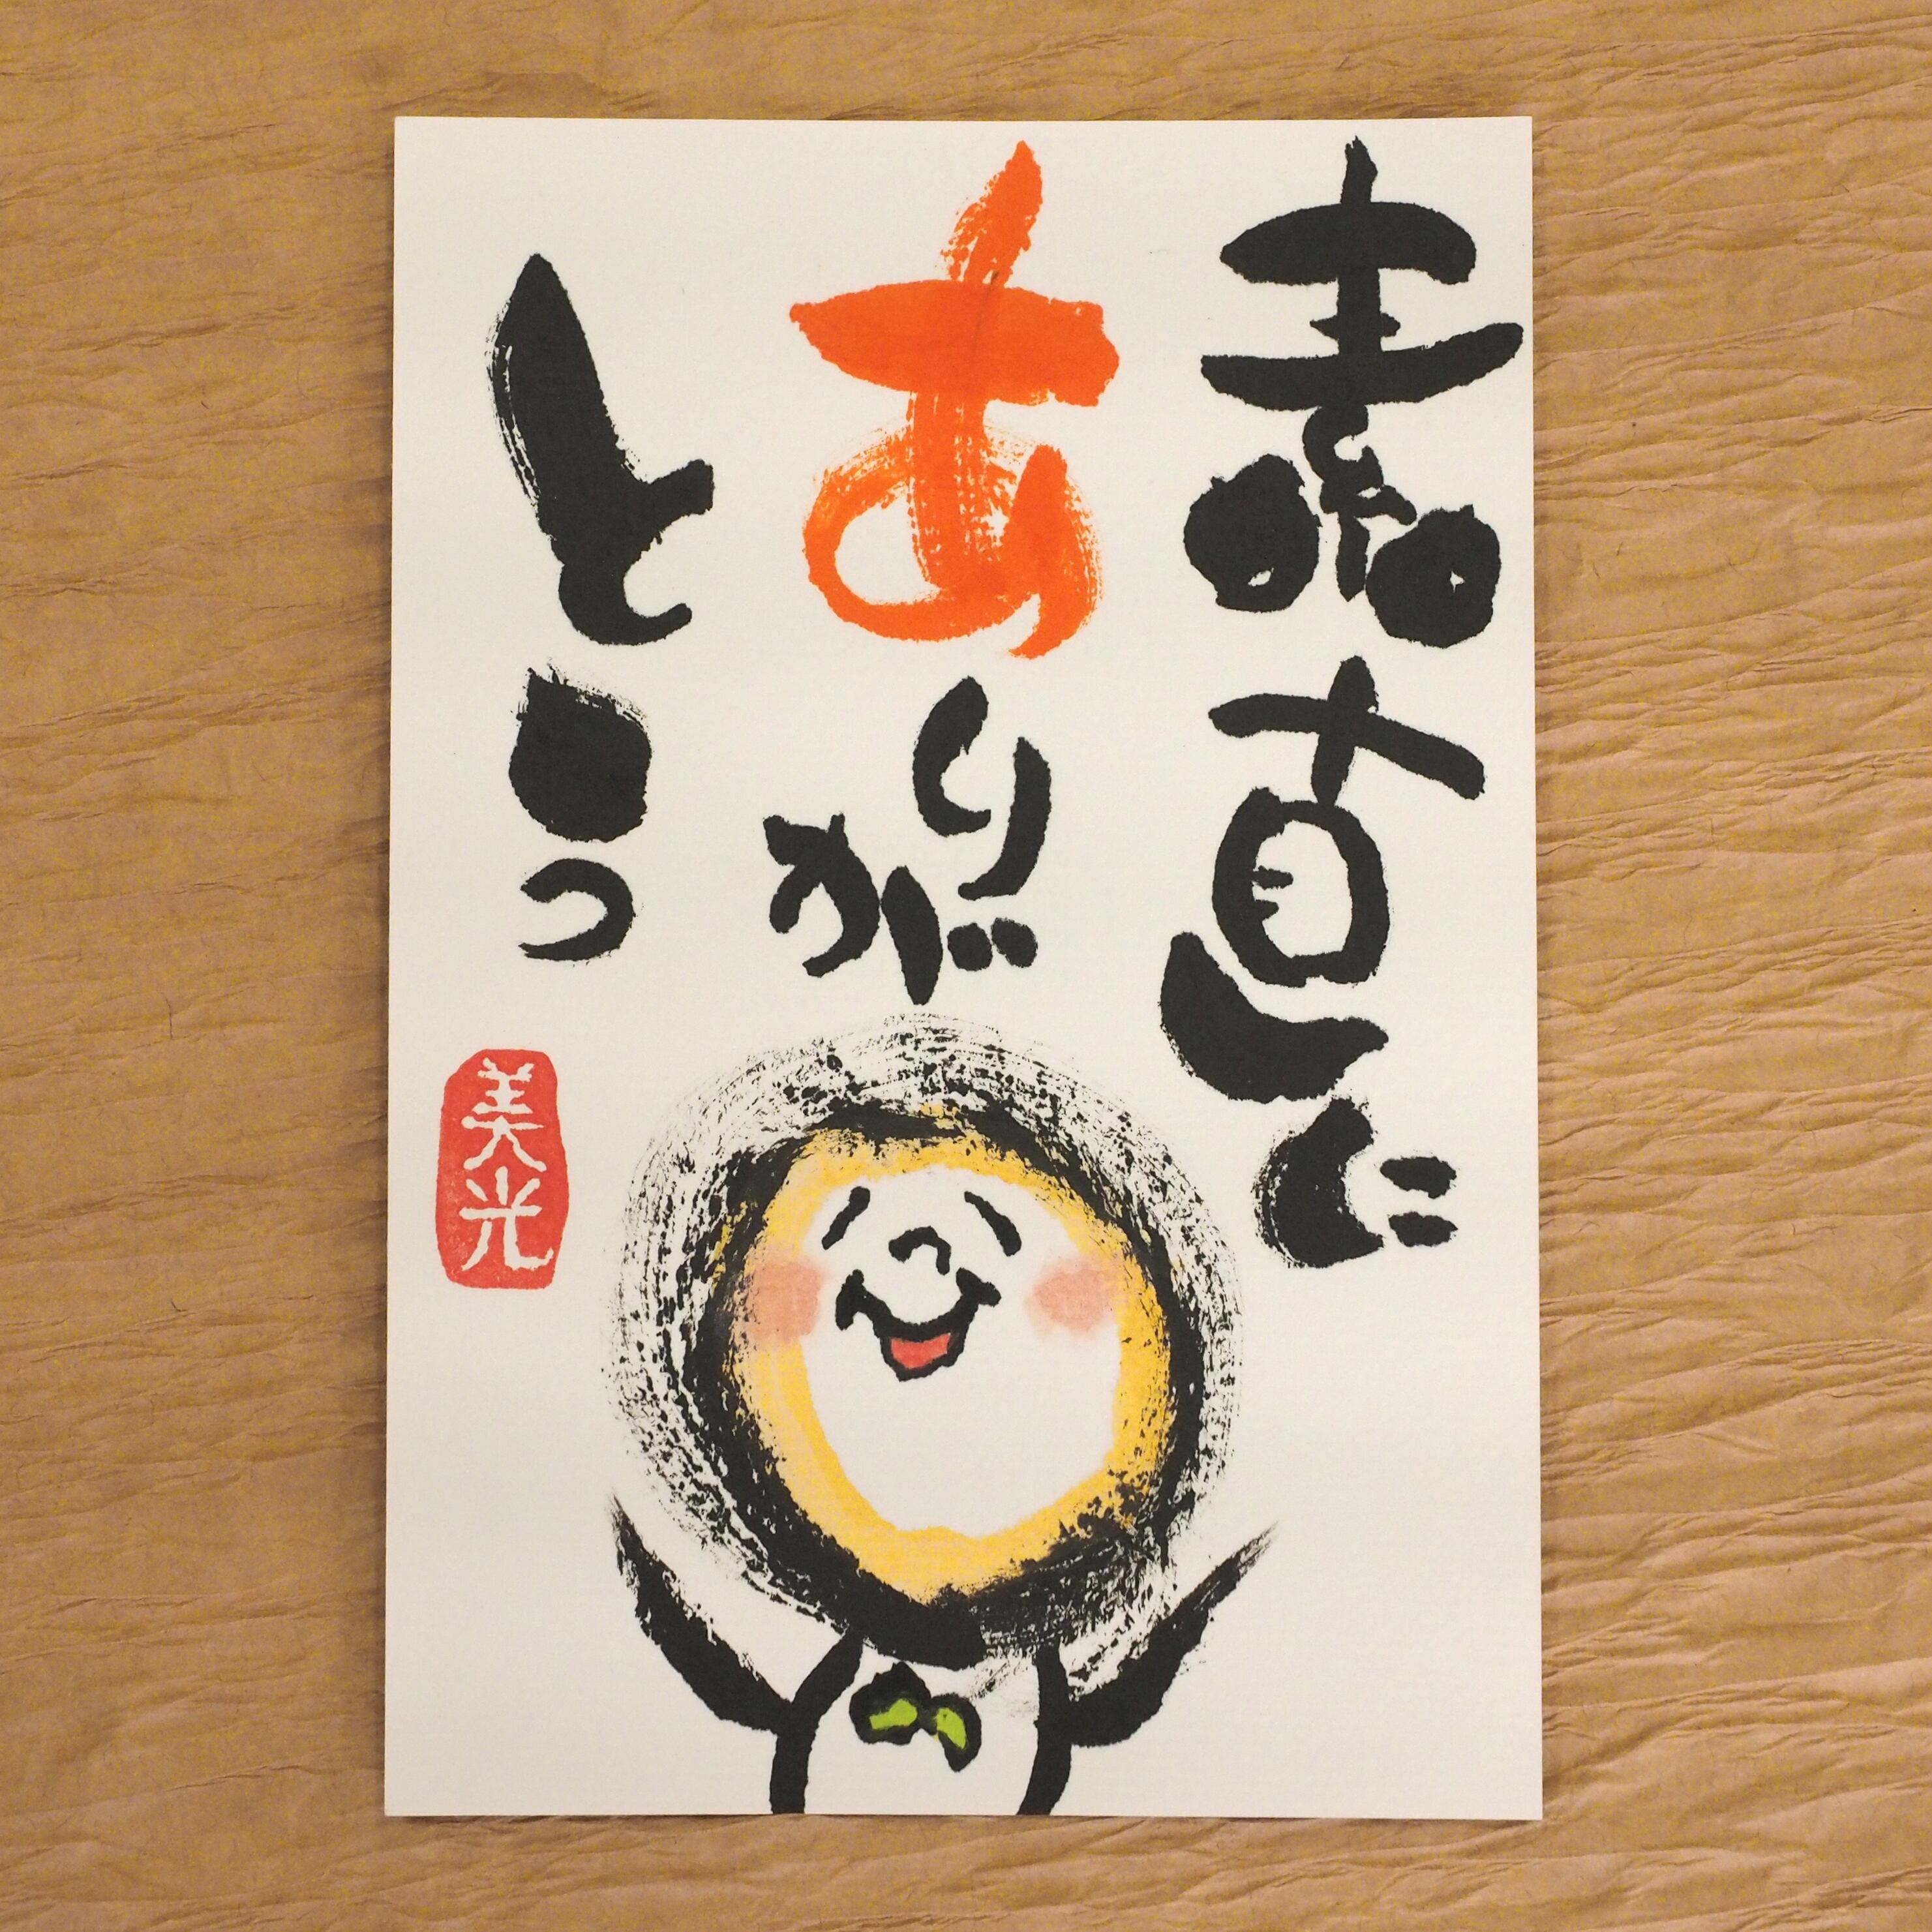 素直に
ありが
とう
美光